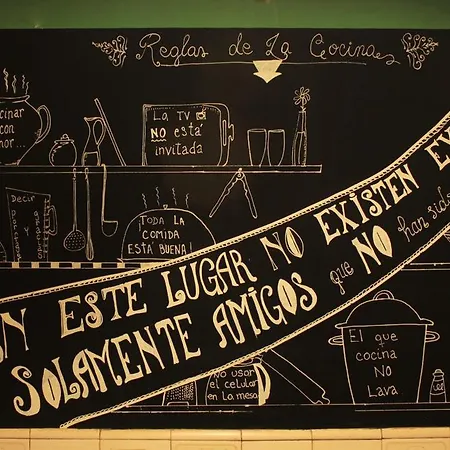 Reglas de La Cocina
cinar
con
mor...
La TV
NO está
invitada
Decir
¡TODA LA
COMIDA
ESTÁ BUENA!
EN ESTE LUGAR NO EXISTEN EX
SOLAMENTE AMIGOS que NO han sido
El que
cocina
NO
Lava
No usar
el celular
en la mesa